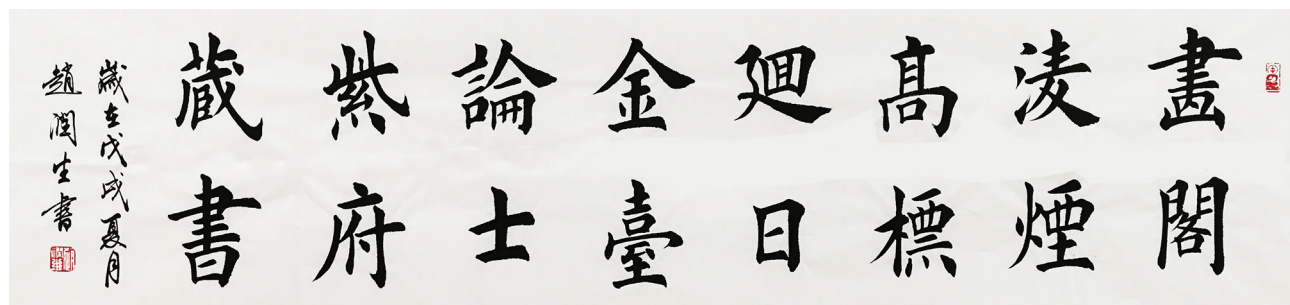 畫閣
淩煙
高標
廻日
金臺
論士
紫府
蔵書
歲在戊戌夏月
趙潤生書